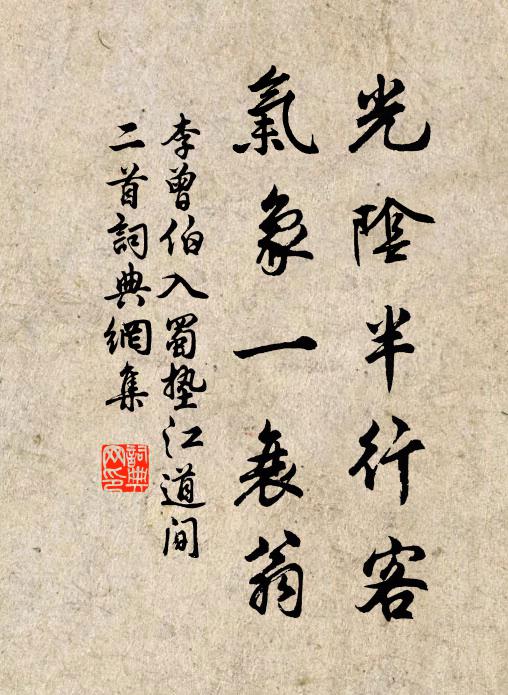 光陰半行客
氣象一衰翁
李曾伯入蜀墊江道间
二首詞典網集
詞典網印